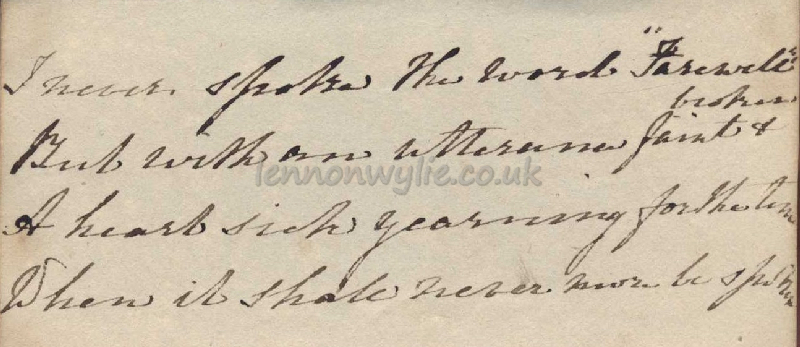 I never spoke the word "Farewell"
broken
But with an utterance faint &
lennonwylie.co.uk
A heart sick yearning for the time
When it shall never more be spoken